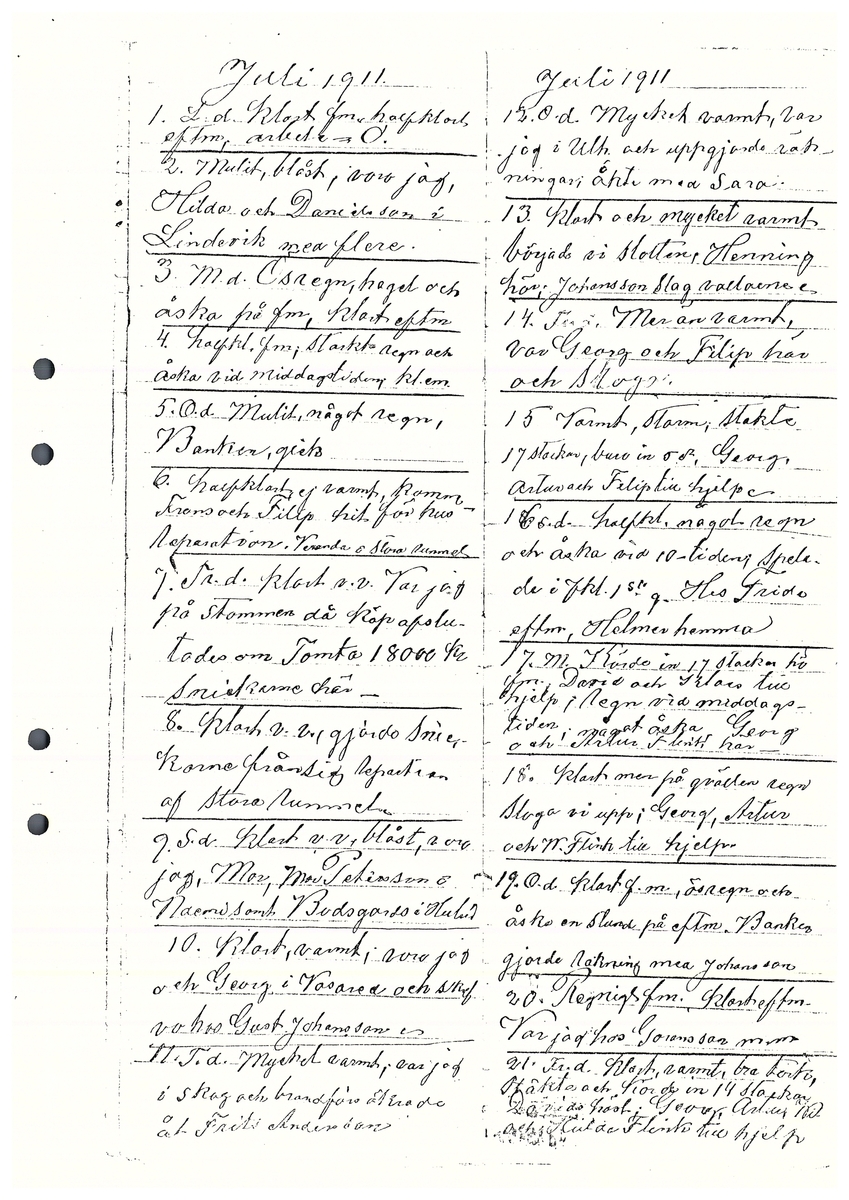 Juli 1911.
1. L.d. Klart fm, halfklart
eftm, arbete = O.
2. Mulit, blåst, voro jag,
Hilda och Danielsson i
Linderik med flere.
3. M.d. Ösregn, hagel och
åska på fm, klart eftm
4. halfkl. fm; starkt regn och
åska vid middagstiden; kl. em.
5. O.d. Mulit, något regn,
Banken, gick
6. halfklart, ej varmt, komm
Frans och Filip hit för hus-
reparation. Veranda o stora rummet
7. Fr.d. klart v.v. Var jag
på stämmen då köp afslu-
tades om Tomta 18000 Kr
Snickarne här —
8. Klart v.v., gjorde Snic-
karne från sig repartion
af stora rummet
9. S.d. Klart v.v., blåst, voro
jag, Mor, Mor Peterson o
Naemi samt Bodsgårds i
10. Klart, varmt; voro jag
och Georg i och
vo hos Gust Johansson
11. T.d. Mycket varmt; var jag
i skog och brandförsäkrade
åt Frits Andersson
Juli 1911
12. O.d. Mycket varmt, var
jag i Ulh. och uppgjorde räk-
ningar; åkte med Sara.
13. klart och mycket varmt
började vi slotten; Henning
här; Johansson slog vallarne
14. Mer än varmt,
var Georg och Filip här
och slogs.
15 Varmt, storm; stakte
17 stackar, buro in Georg,
Artur och Filip till hjelp
16 s.d. halfkl. något regn
och åska vid 10-tiden; spela-
de i fkl. 1sta g. Hos Frida
eftm, Helmer hemma
17. M. Körde in 17 stackar hö
fm, David och Klas till
hjelp; regn vid middags-
tiden; något åska Georg
och Artur Flink här —
18. Klart mer på qvällen regn
sloga vi upp; Georg, Artur
och W. Flink till hjelp
19. O.d. klart f.m., ösregn och
åska en stund på eftm. Banken
gjorde räkning med Johansson
20. Regnigt fm. Klart eftm.
Var jag hos Göransson m m
21. Fr.d. Klart, varmt, bra tork,
räkta och körde in 14 stackar
höst; Georg, Artur
och Hilda Flink till hjelp